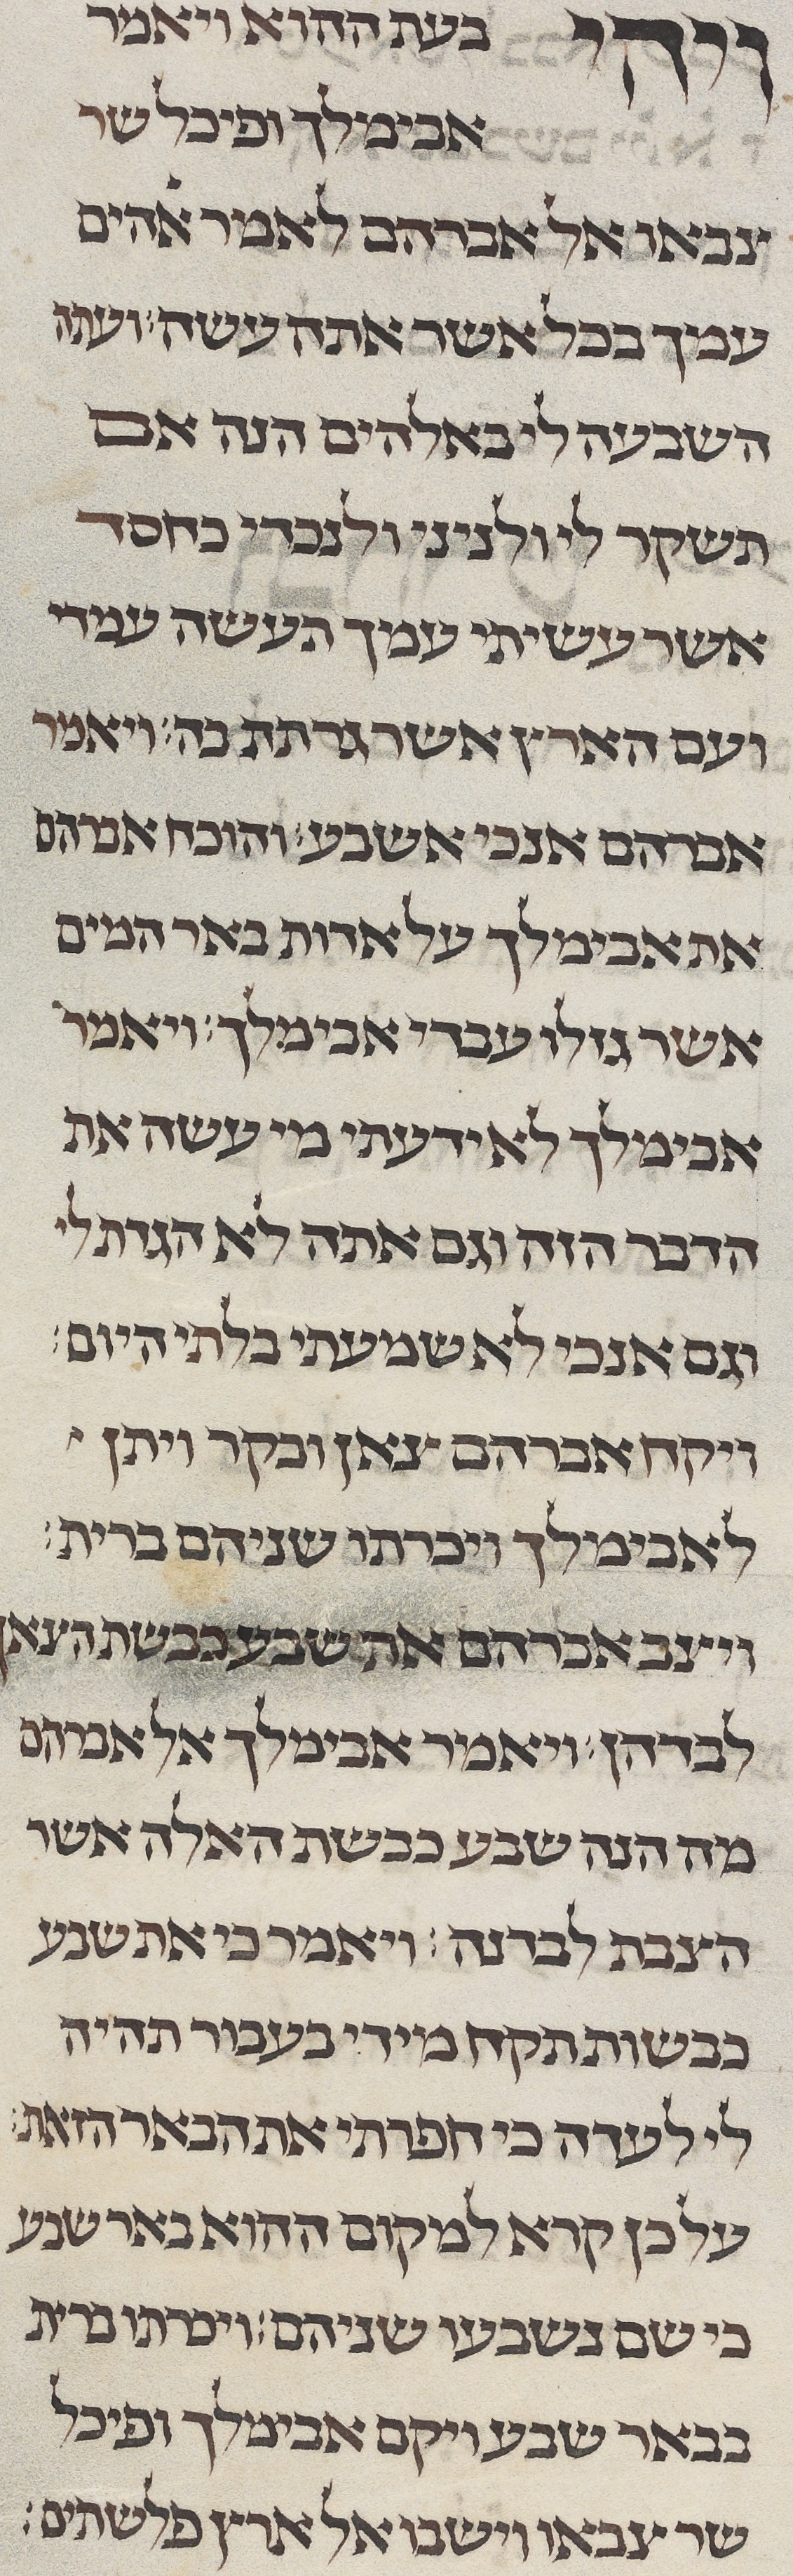 ויהי בעת ההוא ויאמר
אבימלך ופיכל שר
צבאו אל אברהם לאמר אהים
עמך בכל אשר אתה עשה׃ ועתה
השבעה לי באלהים הנה אם
תשקר לי ולניני ולנכדי כחסד
אשר עשיתי עמך תעשה עמדי
ועם הארץ אשר גרתה בה׃ ויאמר
אברהם אנכי אשבע׃ והוכח אברהם
את אבימלך על אדות באר המים
אשר גזלו עבדי אבימלך׃ ויאמר
אבימלך לא ידעתי מי עשה את
הדבר הזה וגם אתה לא הגדת לי
וגם אנכי לא שמעתי בלתי היום׃
ויקח אברהם צאן ובקר ויתן
לאבימלך ויכרתו שניהם ברית׃
ויצב אברהם את שבע כבשת הצאן
לבדהן׃ ויאמר אבימלך אל אברהם
מה הנה שבע כבשת האלה אשר
הצבת לבדנה׃ ויאמר כי את שבע
כבשות תקח מידי בעבור תהיה
לי לעדה כי חפרתי את הבאר הזאת׃
על כן קרא למקום ההוא באר שבע
כי שם נשבעו שניהם׃ ויכרתו ברית
בבאר שבע ויקם אבימלך ופיכל
שר צבאו וישבו אל ארץ פלשתים׃